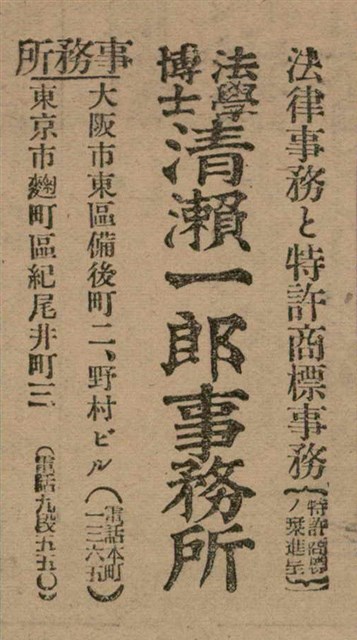 法律事務と特許商標事務（特許商標ノ栞進呈）
法學博士
清瀬一郎事務所
事務所
大阪市東區備後町二、野村ビル（電話本町一三六五）
東京市麴町區紀尾井町三（電話九段五五〇）